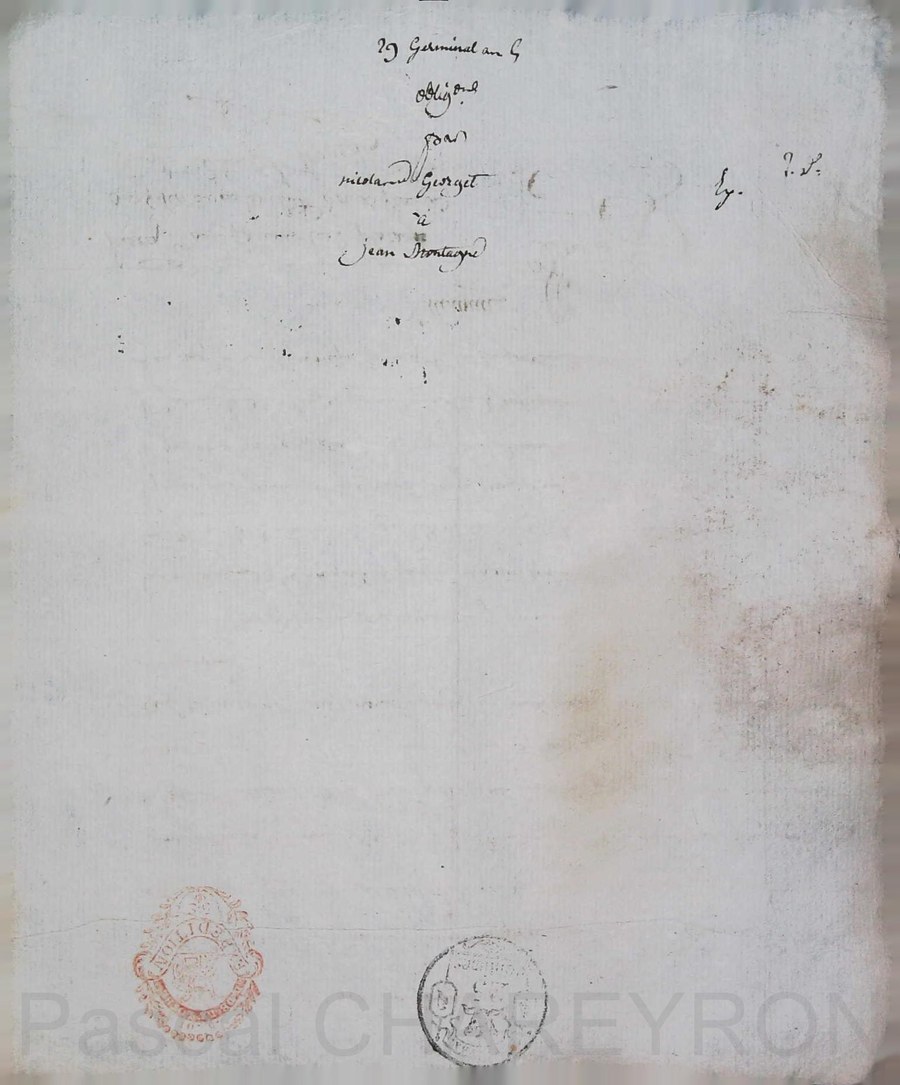 29 Germinal an 5
oblig.on
par
nicolas Georget
à
jean Montagne
Ex.
EXPEDITION
Pascal CHAREYRON